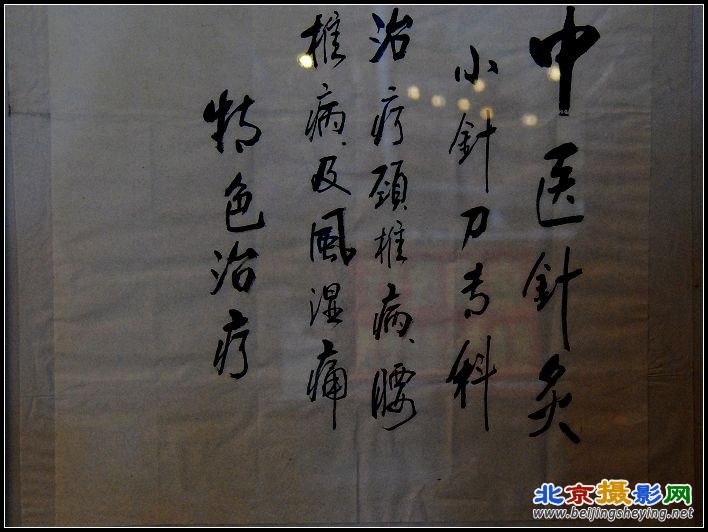 中医針灸
小針刀专科
治疗頸椎病、腰
椎病、及風湿痛
特色治疗
北京摄影网
www.beijingsheying.net